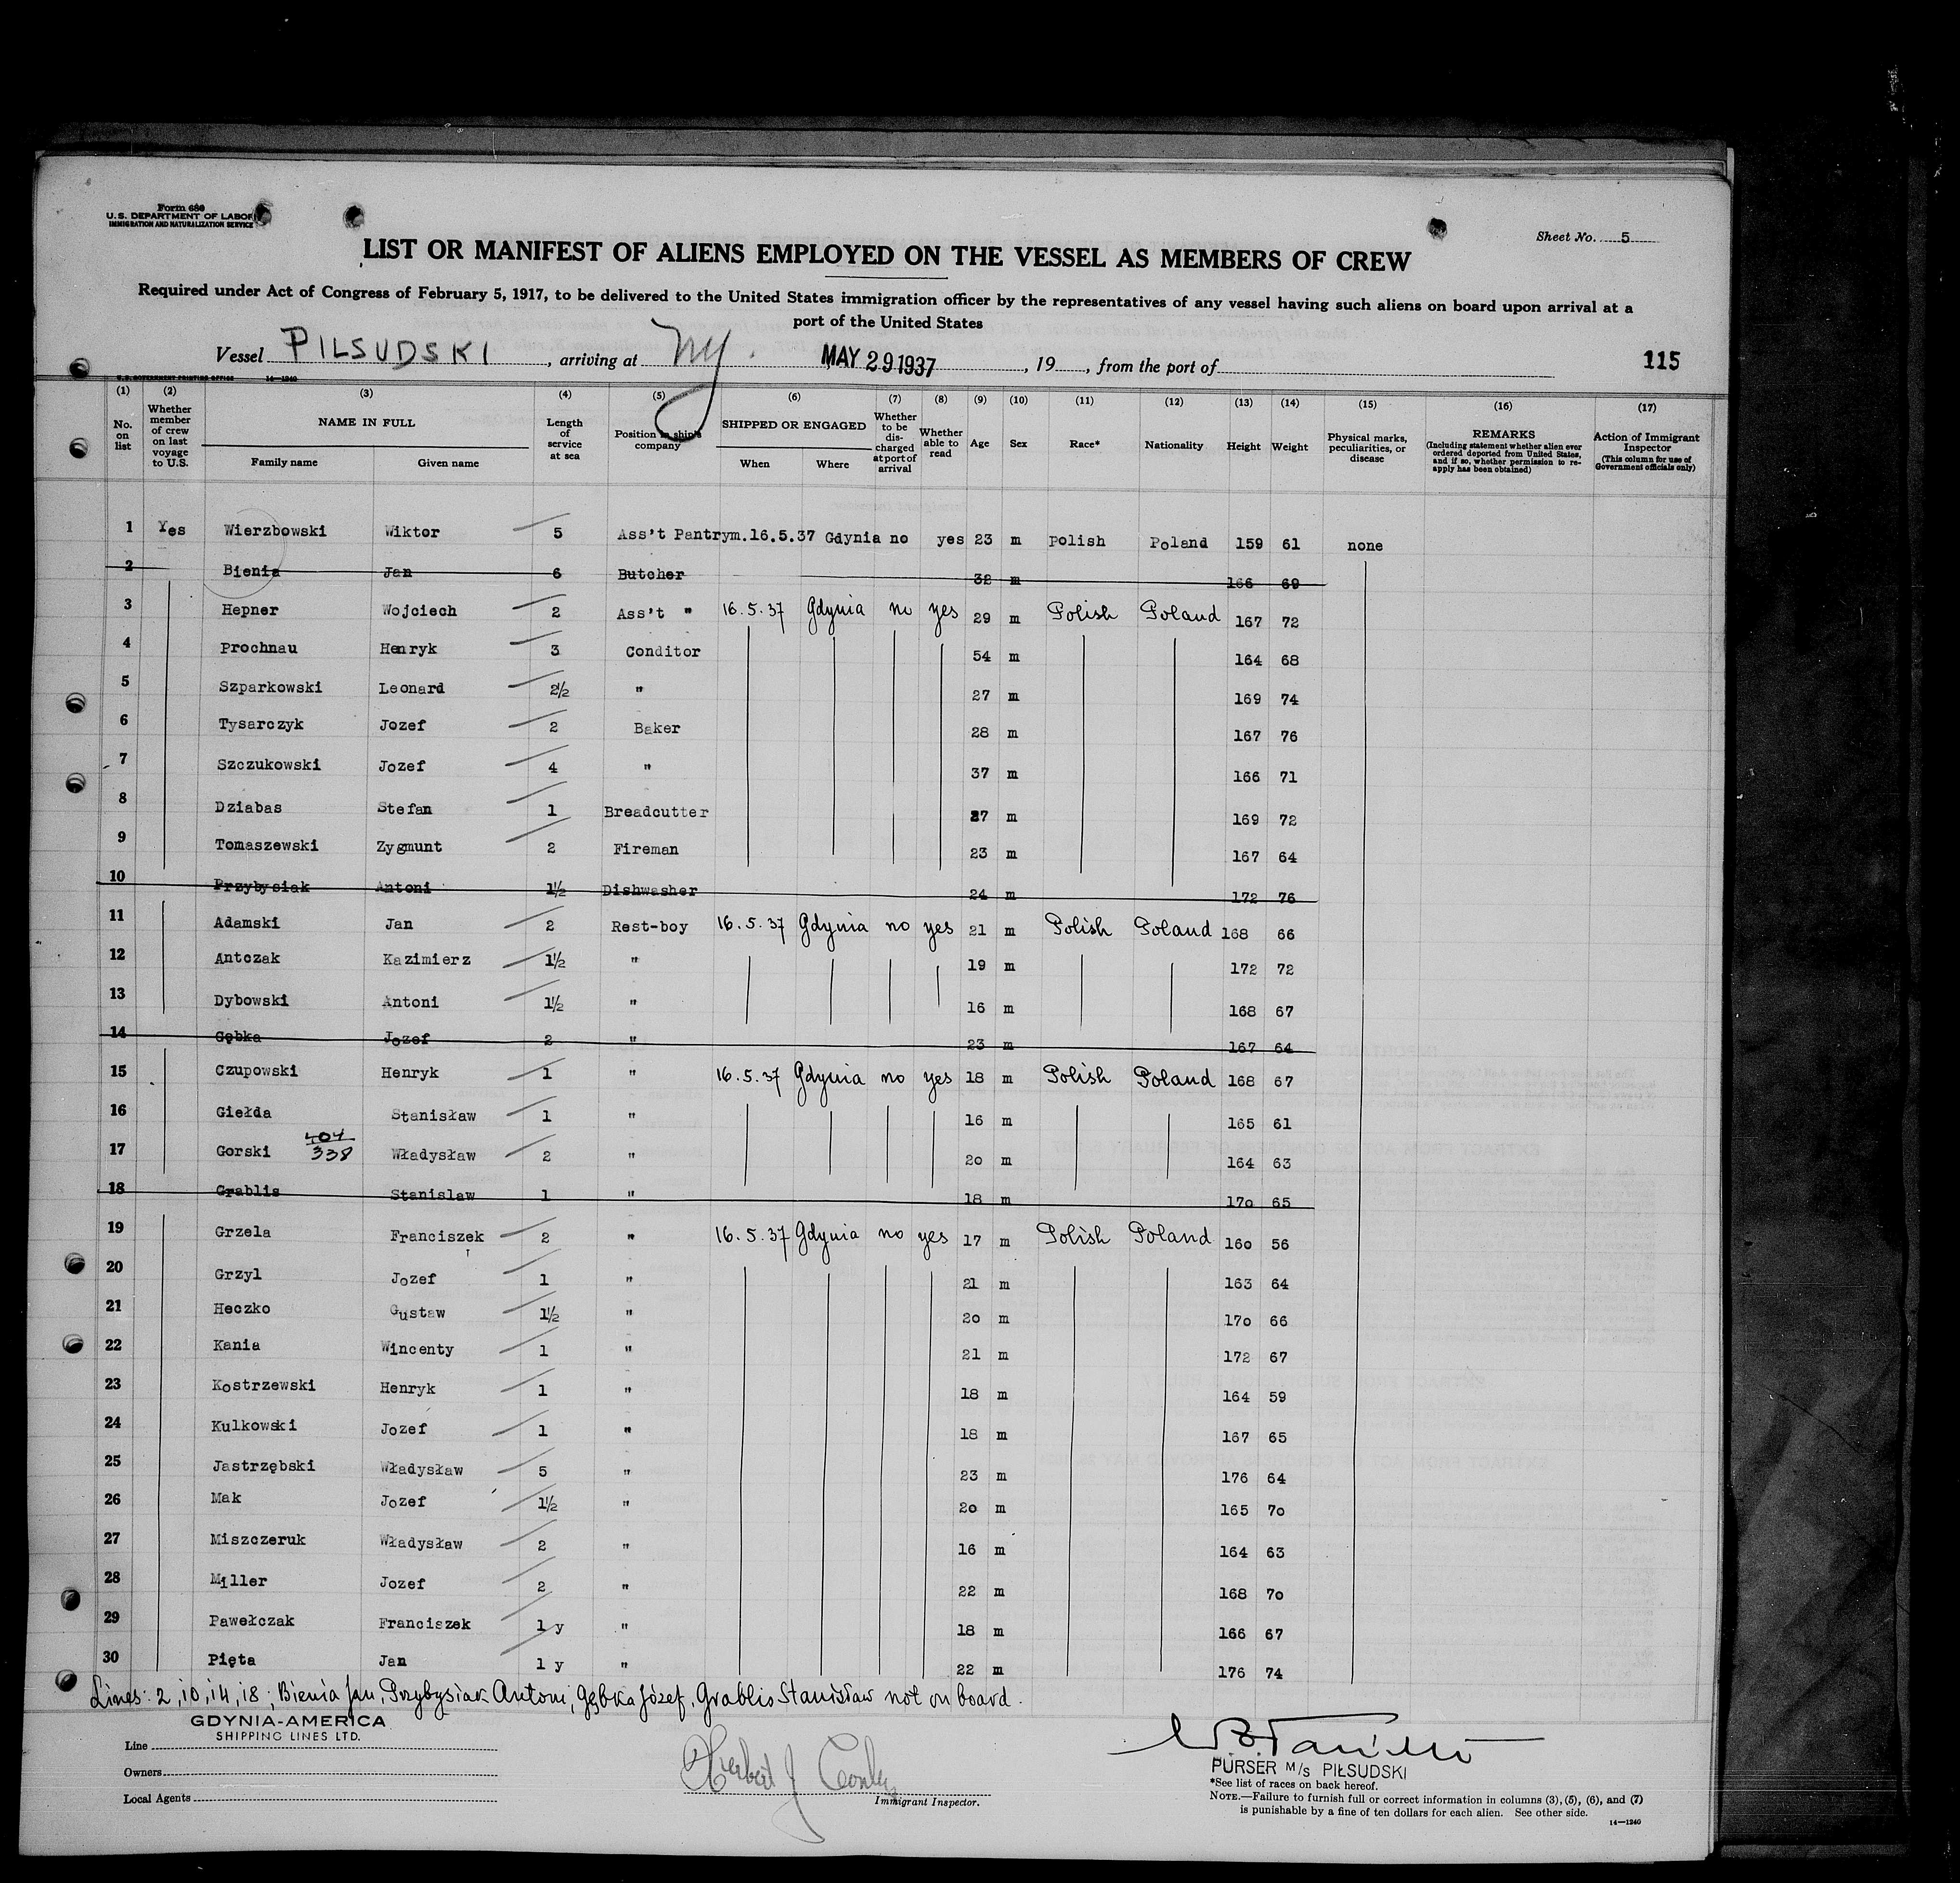 Form 680
U.S. DEPARTMENT OF LABOR
IMMIGRATION AND NATURALIZATION SERVICE
Sheet No. 5
LIST OR MANIFEST OF ALIENS EMPLOYED ON THE VESSEL AS MEMBERS OF CREW
Required under Act of Congress of February 5, 1917, to be delivered to the United States immigration officer by the representatives of any vessel having such aliens on board upon arrival at a
port of the United States
Vessel PILSUDSKI, arriving at NY. MAY 29 1937, 19, from the port of 115
U.S. GOVERNMENT PRINTING OFFICE 14—1240
(1) (2) (3) (4) (5) (6) (7) (8) (9) (10) (11) (12) (13) (14) (15) (16) (17)
No. on list
Whether member of crew on last voyage to U.S.
NAME IN FULL
Family name Given name
Length of service at sea
Position in ship's company
SHIPPED OR ENGAGED
When Where
Whether to be discharged at port of arrival
Whether able to read
Age
Sex
Race*
Nationality
Height
Weight
Physical marks, peculiarities, or disease
REMARKS
(Including statement whether alien ever ordered deported from United States, and if so, whether permission to reapply has been obtained)
Action of Immigrant Inspector
(This column for use of Government officials only)
1 Yes Wierzbowski Wiktor 5 Ass't Pantrym. 16.5.37 Gdynia no yes 23 m polish Poland 159 61 none
2 Bienia Jan 6 Butcher 32 m 166 69
3 Hepner Wojciech 2 Ass't " 16.5.37 Gdynia no yes 29 m Polish Poland 167 72
4 Prochnau Henryk 3 Conditor 54 m 164 68
5 Szparkowski Leonard 2½ " 27 m 169 74
6 Tysarczyk Jozef 2 Baker 28 m 167 76
7 Szczukowski Jozef 4 " 37 m 166 71
8 Dziabas Stefan 1 Breadcutter 27 m 169 72
9 Tomaszewski Zygmunt 2 Fireman 23 m 167 64
10 Przybysiak Antoni 1½ Dishwasher 24 m 172 76
11 Adamski Jan 2 Rest-boy 16.5.37 Gdynia no yes 21 m Polish Poland 168 66
12 Antczak Kazimierz 1½ " 19 m 172 72
13 Dybowski Antoni 1½ " 16 m 168 67
14 Gębka Jozef 2 " 23 m 167 64
15 Czupowski Henryk 1 " 16.5.37 Gdynia no yes 18 m Polish Poland 168 67
16 Giełda Stanisław 1 " 16 m 165 61
404
17 Gorski 338 Władysław 2 " 20 m 164 63
18 Grablis Stanislaw 1 " 18 m 170 65
19 Grzela Franciszek 2 " 16.5.37 Gdynia no yes 17 m Polish Poland 160 56
20 Grzyl Jozef 1 " 21 m 163 64
21 Heczko Gustaw 1½ " 20 m 170 66
22 Kania Wincenty 1 " 21 m 172 67
23 Kostrzewski Henryk 1 " 18 m 164 59
24 Kulkowski Jozef 1 " 18 m 167 65
25 Jastrzębski Władysław 5 " 23 m 176 64
26 Mak Jozef 1½ " 20 m 165 70
27 Miszczeruk Władysław 2 " 16 m 164 63
28 Miller Jozef 2 " 22 m 168 70
29 Pawełczak Franciszek 1 y " 18 m 166 67
30 Pięta Jan 1 y " 22 m 176 74
Lines: 2, 10, 14, 18; Bienia Jan, Przybysiak Antoni, Gębka Józef, Grablis Stanisław not on board.
GDYNIA-AMERICA
SHIPPING LINES LTD.
Line
Owners
Local Agents
Herbert J Conley
Immigrant Inspector.
PURSER M/S PIŁSUDSKI
*See list of races on back hereof.
NOTE.—Failure to furnish full or correct information in columns (3), (5), (6), and (7)
is punishable by a fine of ten dollars for each alien. See other side.
14—1240